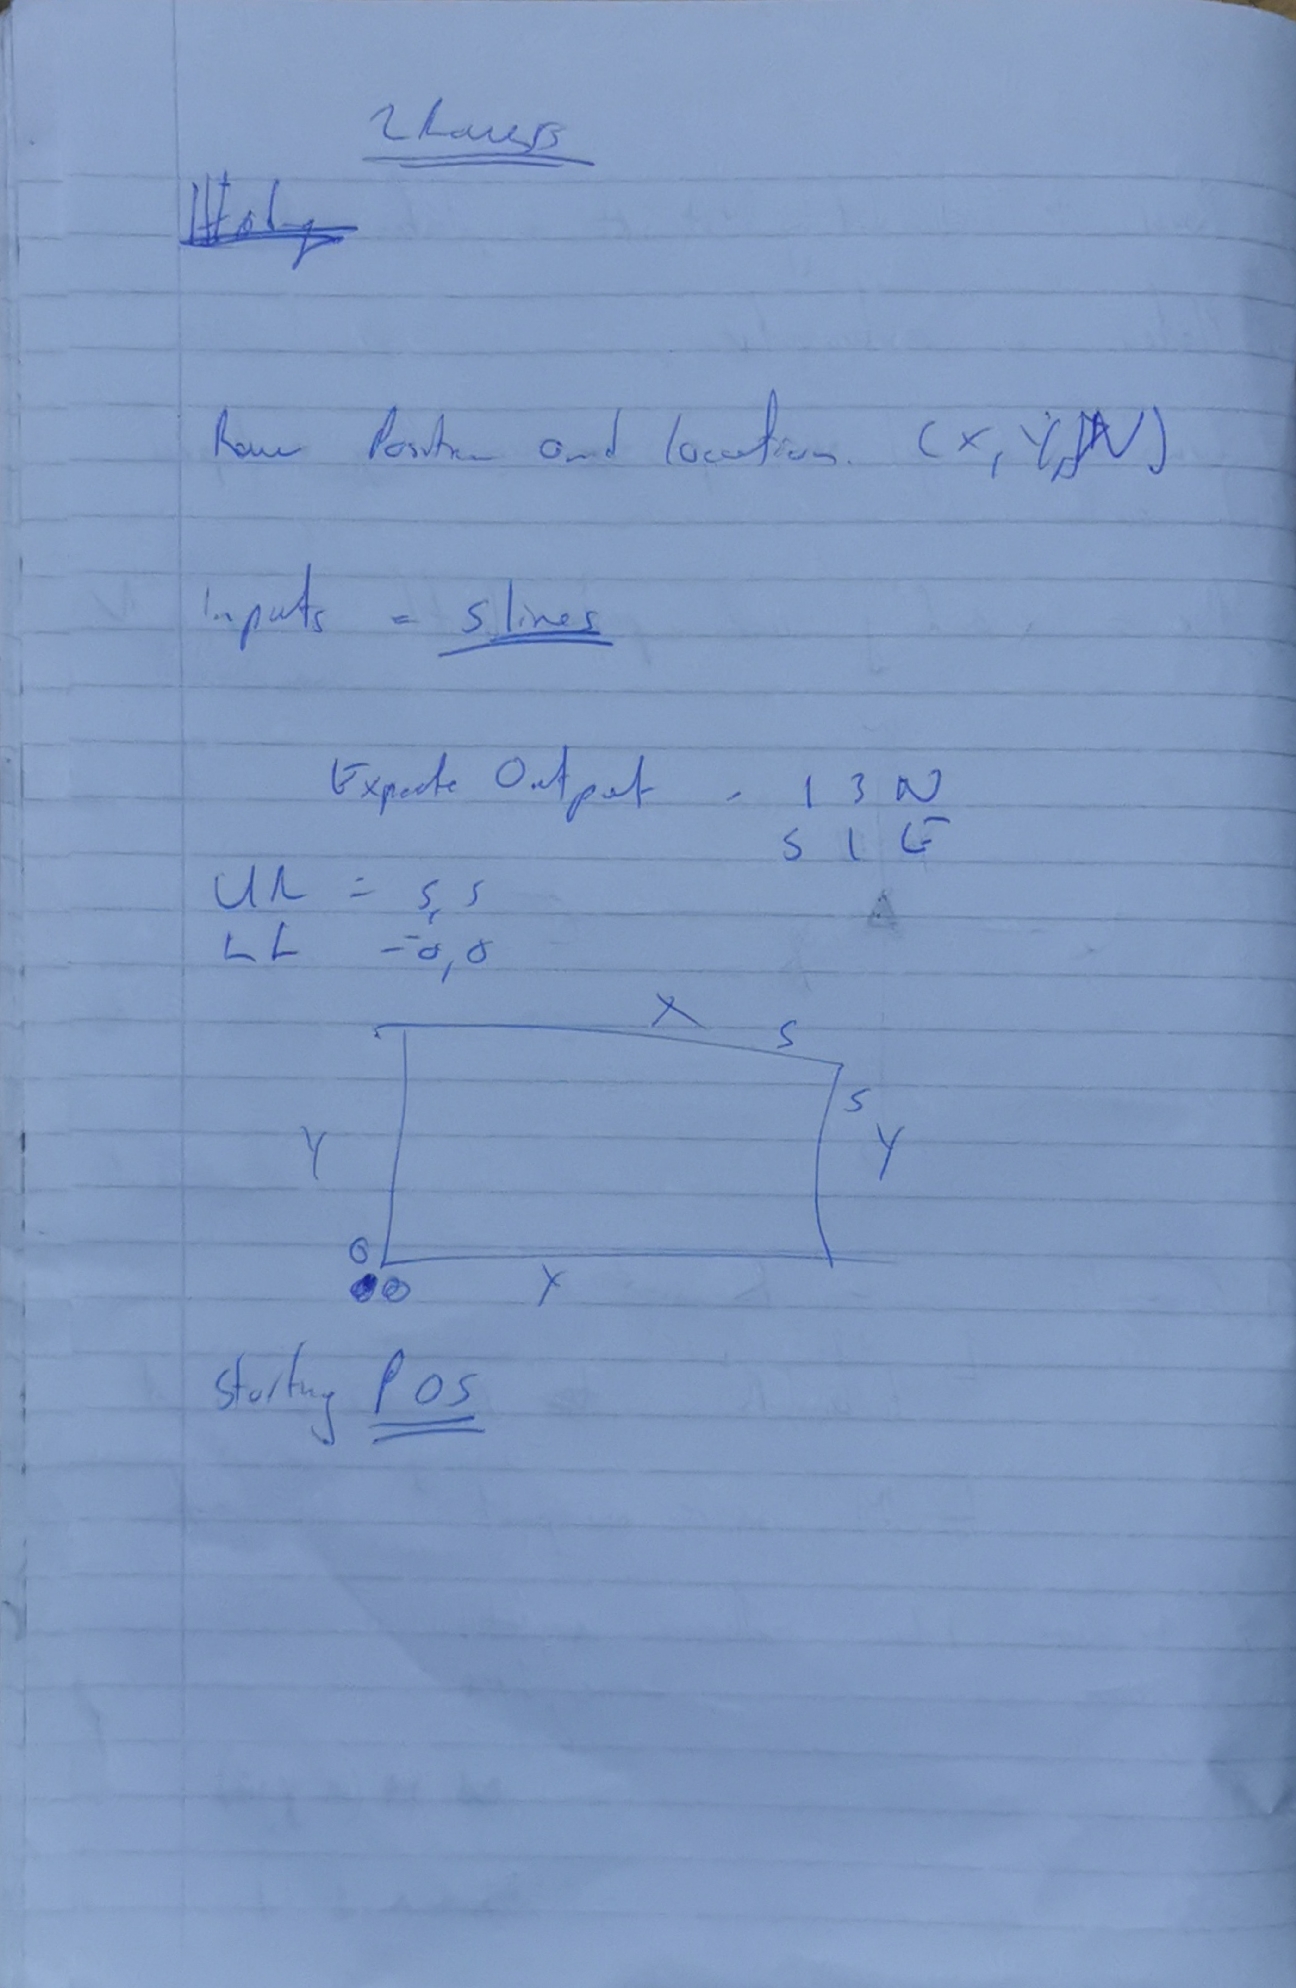 2 Rovers
Rover Position and location. (X, Y, N)
Inputs = 5 lines
Expecte Output - 1 3 N
5 1 E
UR = 5, 5
LL = 0, 0
X 5
5
Y Y
0
0 X
Starting POS